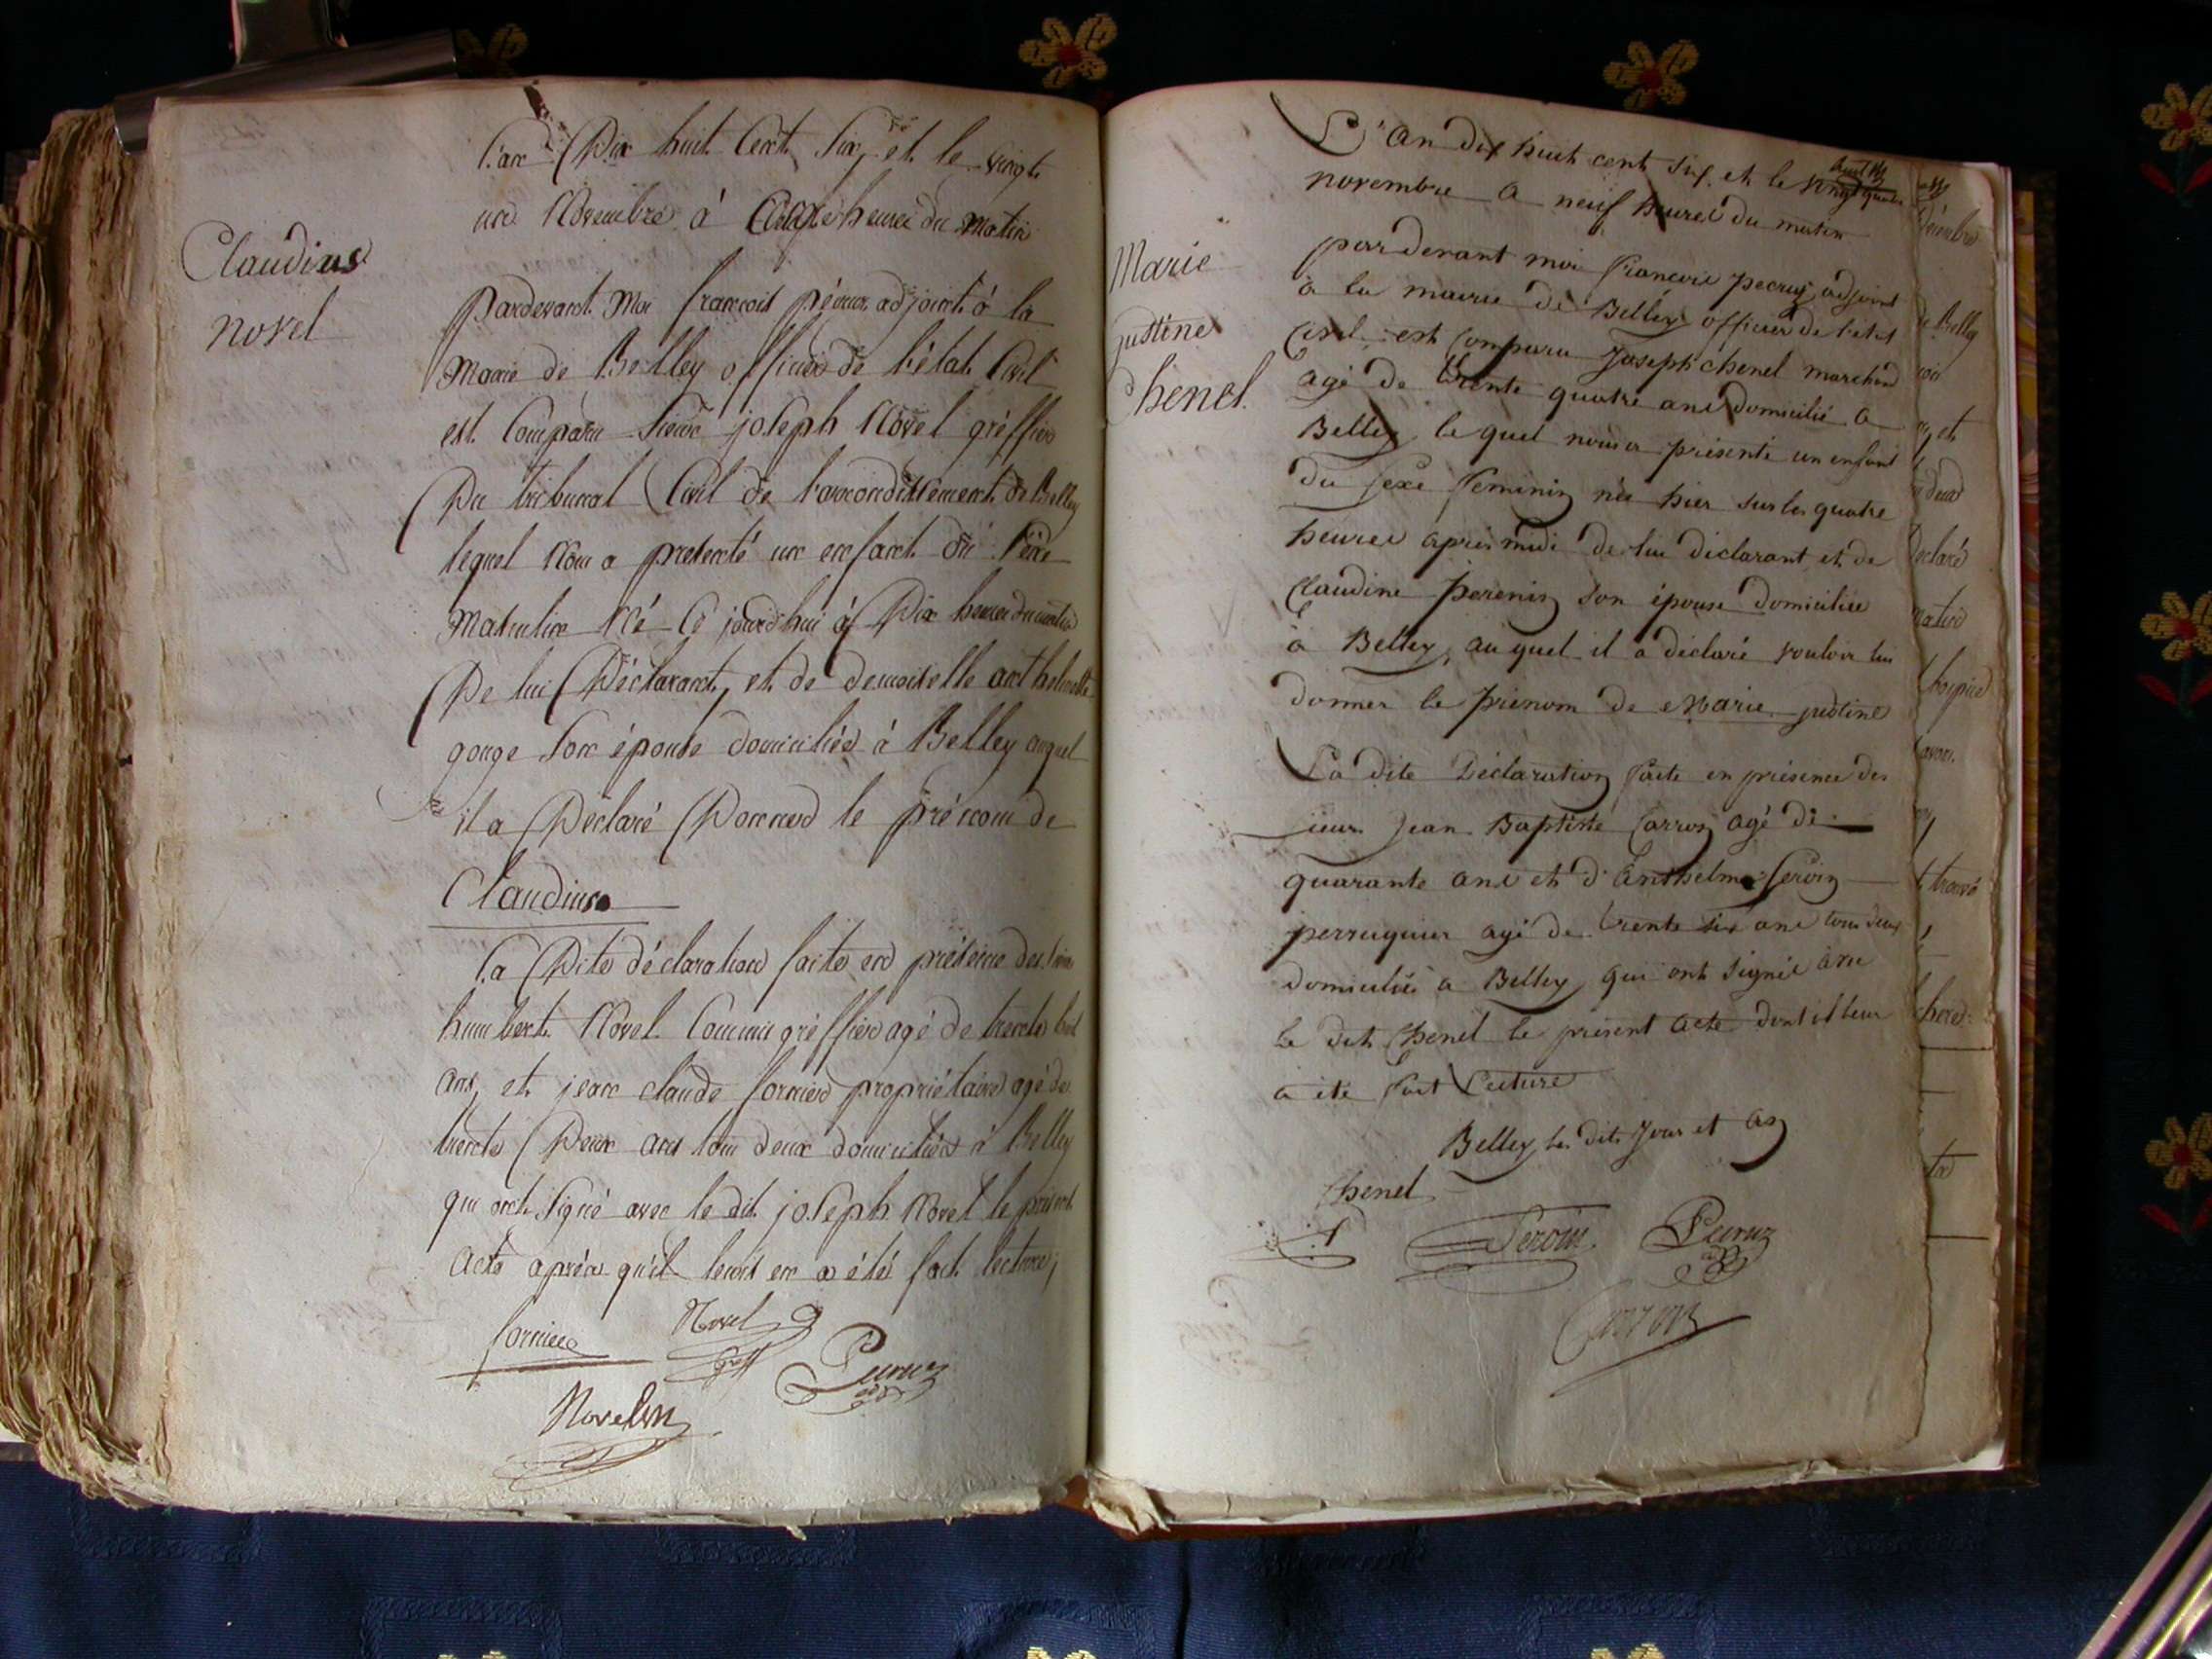 Claudius
novel
L'an Dix huit Cent Six, et le vingt
un Novembre à heures du Matin
Pardevant Moi françois pécruz adjoint à la
Mairie de Belley officier de l'état Civil
est Comparu Sieur joseph Novel gréffier
Du tribunal Civil de l'arrondissement de Belley
lequel Nous a presenté un enfant du Séxe
Masculin Né Ce jourd'hui à Dix heures du matin
De lui Déclarant, et de demoiselle anthelmette
gouge Son épouse domiciliés à Belley auquel
il a Déclaré Donner le prénom de
Claudius
La Dite déclaration faite en présence des Sieurs
humbert Novel Commis gréffier agé de trente huit
ans, et jean claude fornier propriétaire agé de
trente Deux ans tous deux domiciliés à Belley
qui ont Signé avec le dit joseph Novel le présent
acte après qu'il leurs en a été fait lecture,
fornier
Novel
greff
Pecruz
adj
Novel
Marie
justine
Chenel.
L'An dix huit cent six, et le
novembre a neuf heures du matin
par devant moi françois pecruz adjoint
à la mairie de Belley officier de l'état
Civil est Comparu Joseph chenel marchand
agé de trente quatre ans domicilié a
Belley lequel nous a présenté un enfant
du sexe feminin née hier sur les quatre
heures après midi de lui déclarant et de
Claudine perenin son épouse domiciliée
à Belley, auquel il a déclaré vouloir lui
donner le prénom de Marie justine
La dite Déclaration faite en présence des
sieurs Jean Baptiste Carron agé de
quarante ans et d'Anthelme
perruquier agé de trente six ans tous deux
domiciliés a Belley qui ont signé avec
le dit Chenel le présent acte dont il leur
a été fait Lecture
Belley les dits Jour et an
Chenel
Pecruz
adj
Carron
Décembre
de Belley
et
deux
déclaré
matin
hospice
trouvé